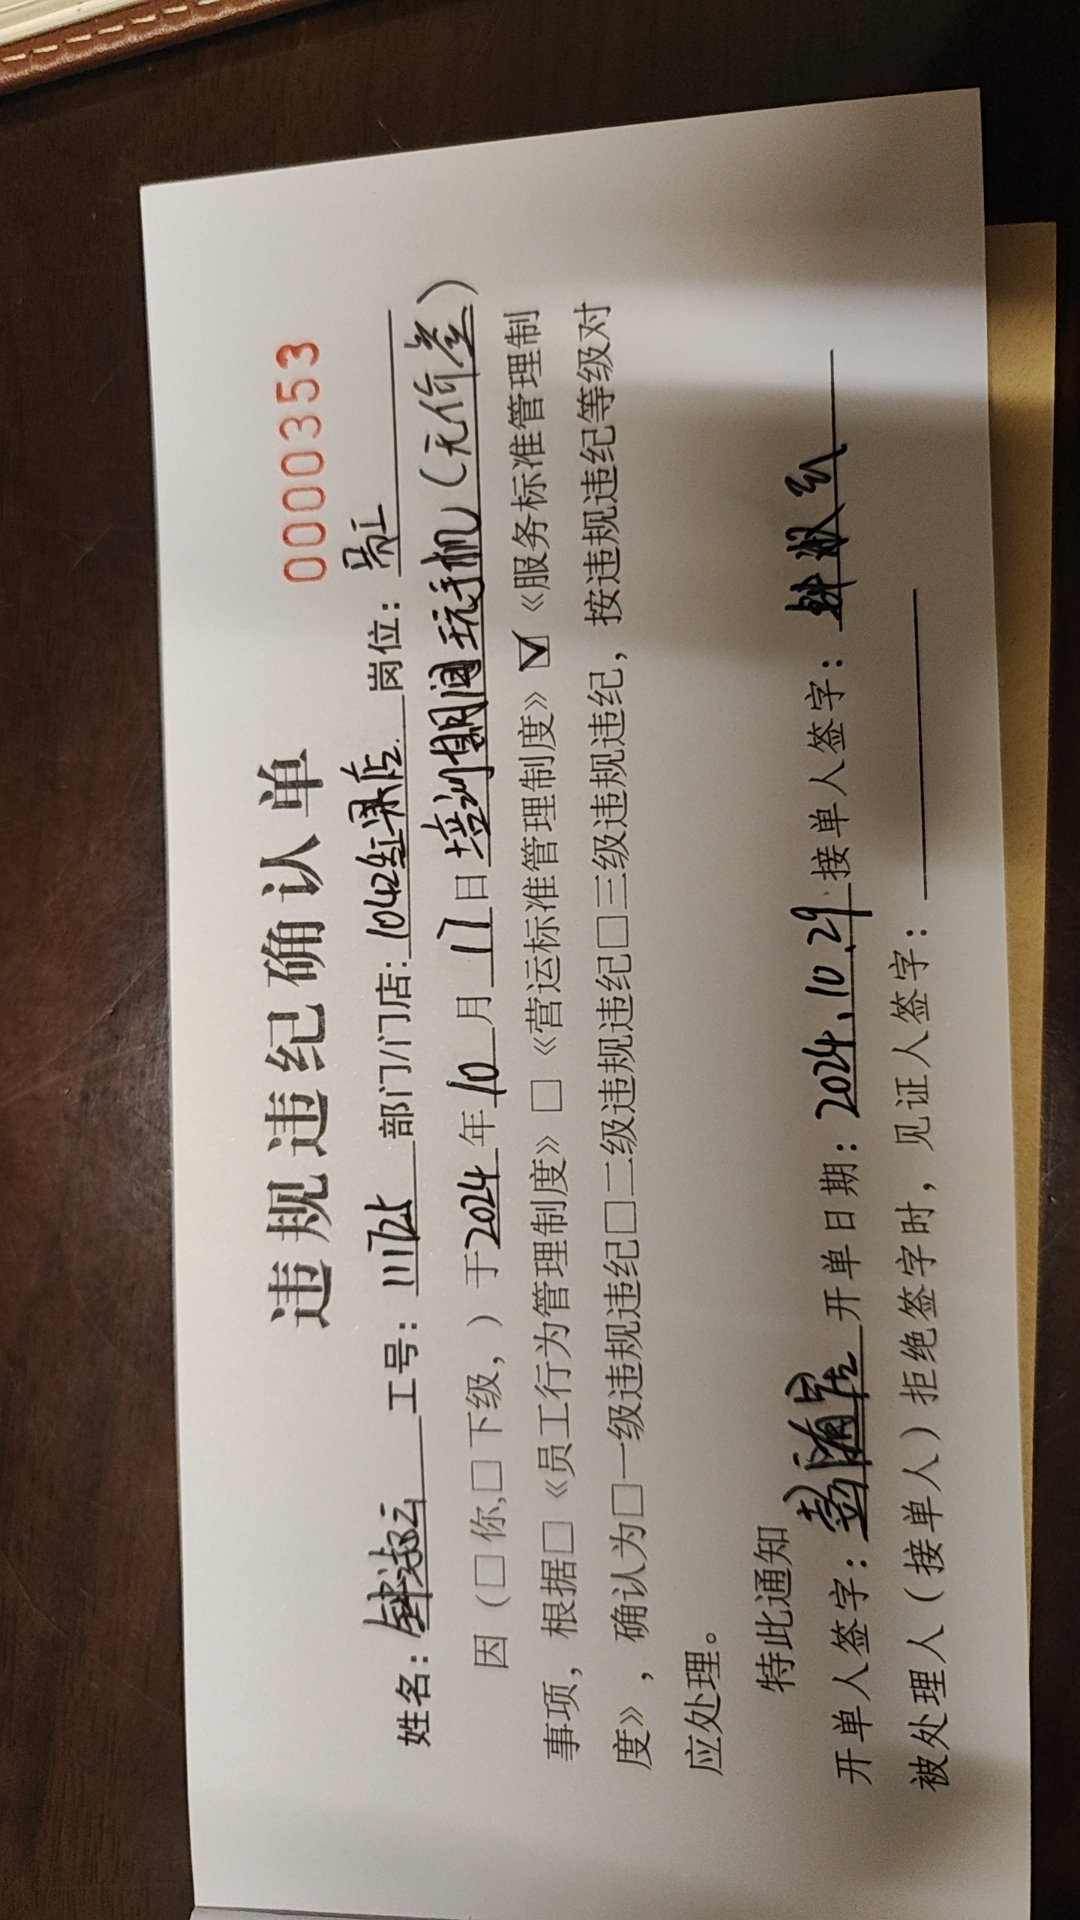 违规违纪确认单
0000353
姓名：钟淑云 工号：部门/门店：1042红果店 岗位：员工
因（□你,□下级，）于2024年10月17日培训期间玩手机（无价差）
事项，根据□《员工行为管理制度》□《营运标准管理制度》☑《服务标准管理制
度》，确认为□一级违规违纪□二级违规违纪□三级违规违纪，按违规违纪等级对
应处理。
特此通知
开单人签字：开单日期：2024、10、29 接单人签字：钟淑云
被处理人（接单人）拒绝签字时，见证人签字：